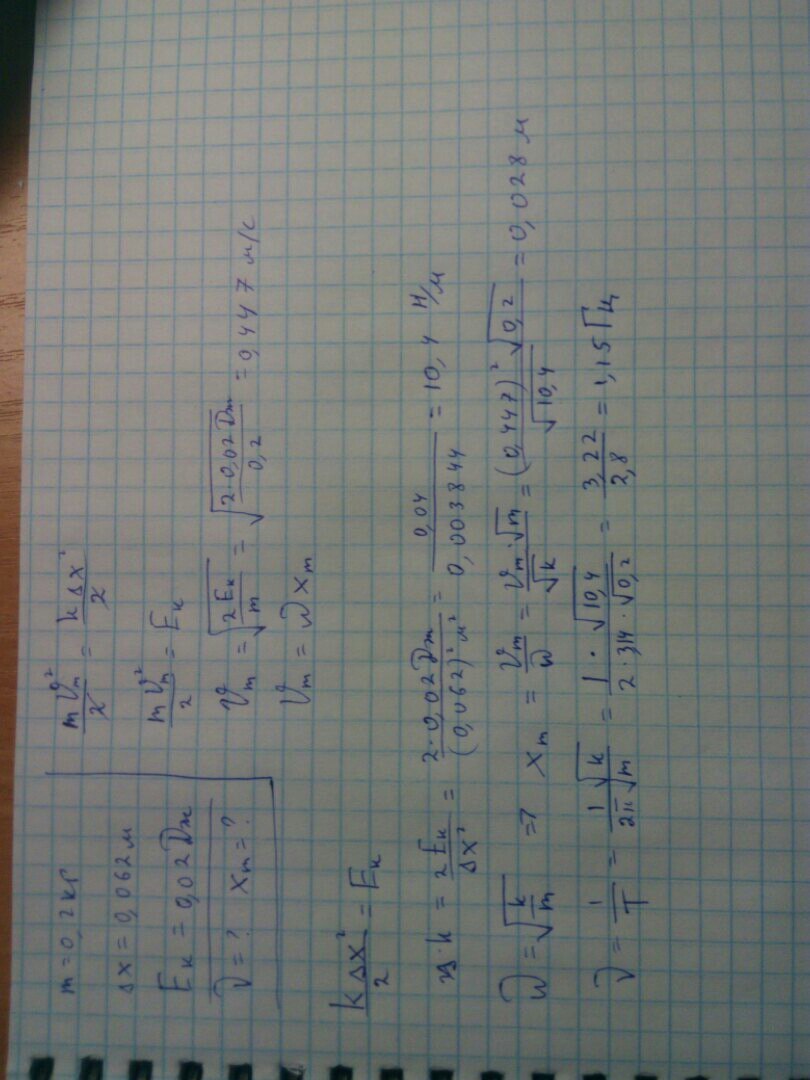 m = 0,2 кг
Δx = 0,062 м
Eк = 0,02 Дж
ν = ? xm = ?
mVm²/2 = kΔx²/2
mVm²/2 = Eк
Vm = √(2Eк/m) = √(2·0,02 Дж/0,2) = 0,447 м/с
Vm = ω xm
kΔx²/2 = Eк
k = 2Eк/Δx² = 2·0,02 Дж/(0,062)² м² = 0,04/0,003844 = 10,4 Н/м
ω = √(k/m) => xm = Vm/ω = Vm·√m/√k = (0,447)²√0,2/√10,4 = 0,028 м
ν = 1/T = 1√k/2π√m = 1·√10,4/2·3,14·√0,2 = 3,22/2,8 = 1,15 Гц